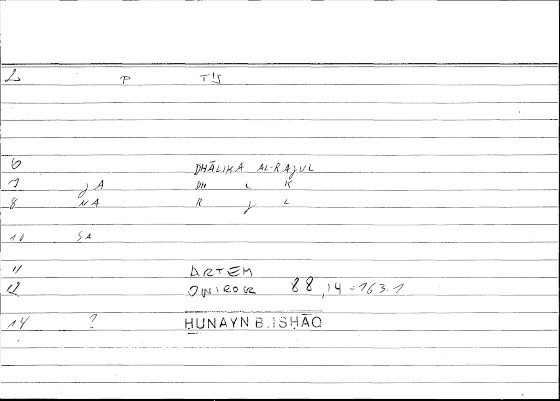 2 P T!S
6 DHĀLIKA AL-RAJUL
7 JA DH L K
8 NA R J L
10 SA
11 ARTEM
12 ONIROCR 88,14-163.1
14 ? HUNAYN B. ISHĀQ